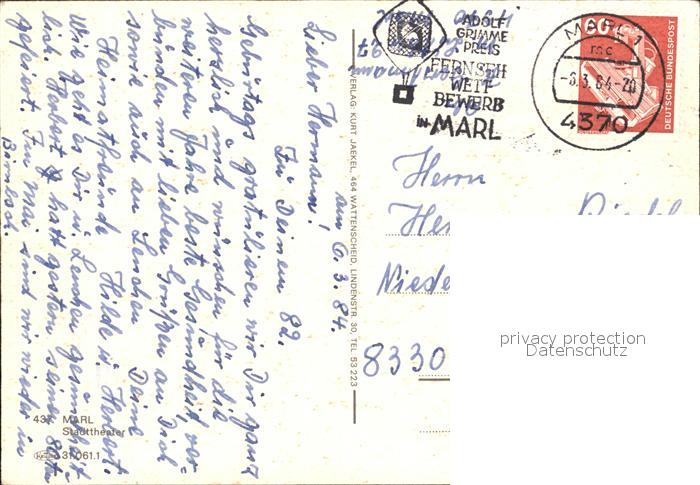 am 6.3.84.
Lieber Hermann!
Zu Deinem 82.
Geburtstag gratulieren wir Dir ganz
herzlich und wünschen für die
weiteren Jahre beste Gesundheit, ver-
bunden mit lieben Grüßen an Dich
sowie auch an Lenchen Deine
Heimatfreunde Hilde u. Herbert.
Wie geht es Dir u. Lenchen gesundheit-
lich. Hubert J. hatt gestern seinen 80ten
gefeiert. Im Mai sind wir wieder in
Birnbach.
437 MARL
Stadttheater
31/061.1
VERLAG: KURT JAEKEL, 464 WATTENSCHEID, LINDENSTR. 30, TEL 53223
ADOLF
GRIMME
PREIS
FERNSEH
WETT
BEWERB
in MARL
MARL 1
mc
-6.3.84-20
4370
80
DEUTSCHE BUNDESPOST
Herrn
Niede
8330
privacy protection
Datenschutz